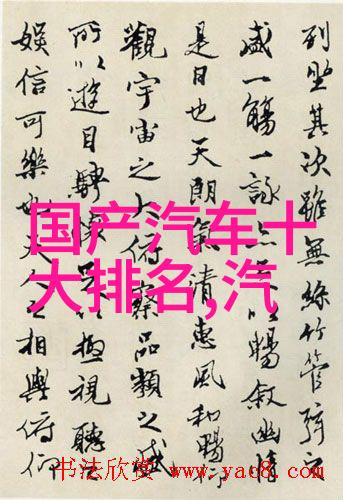 列坐其次雖無絲竹管弦之
盛一觴一詠亦足以暢敘幽情
是日也天朗氣清惠風和暢仰
觀宇宙之大俯察品類之盛
所以遊目騁懷足以極視聽之
娛信可樂也夫人之相與俯仰
国产汽车十
大排名,汽
书法欣赏 www.yac8.com